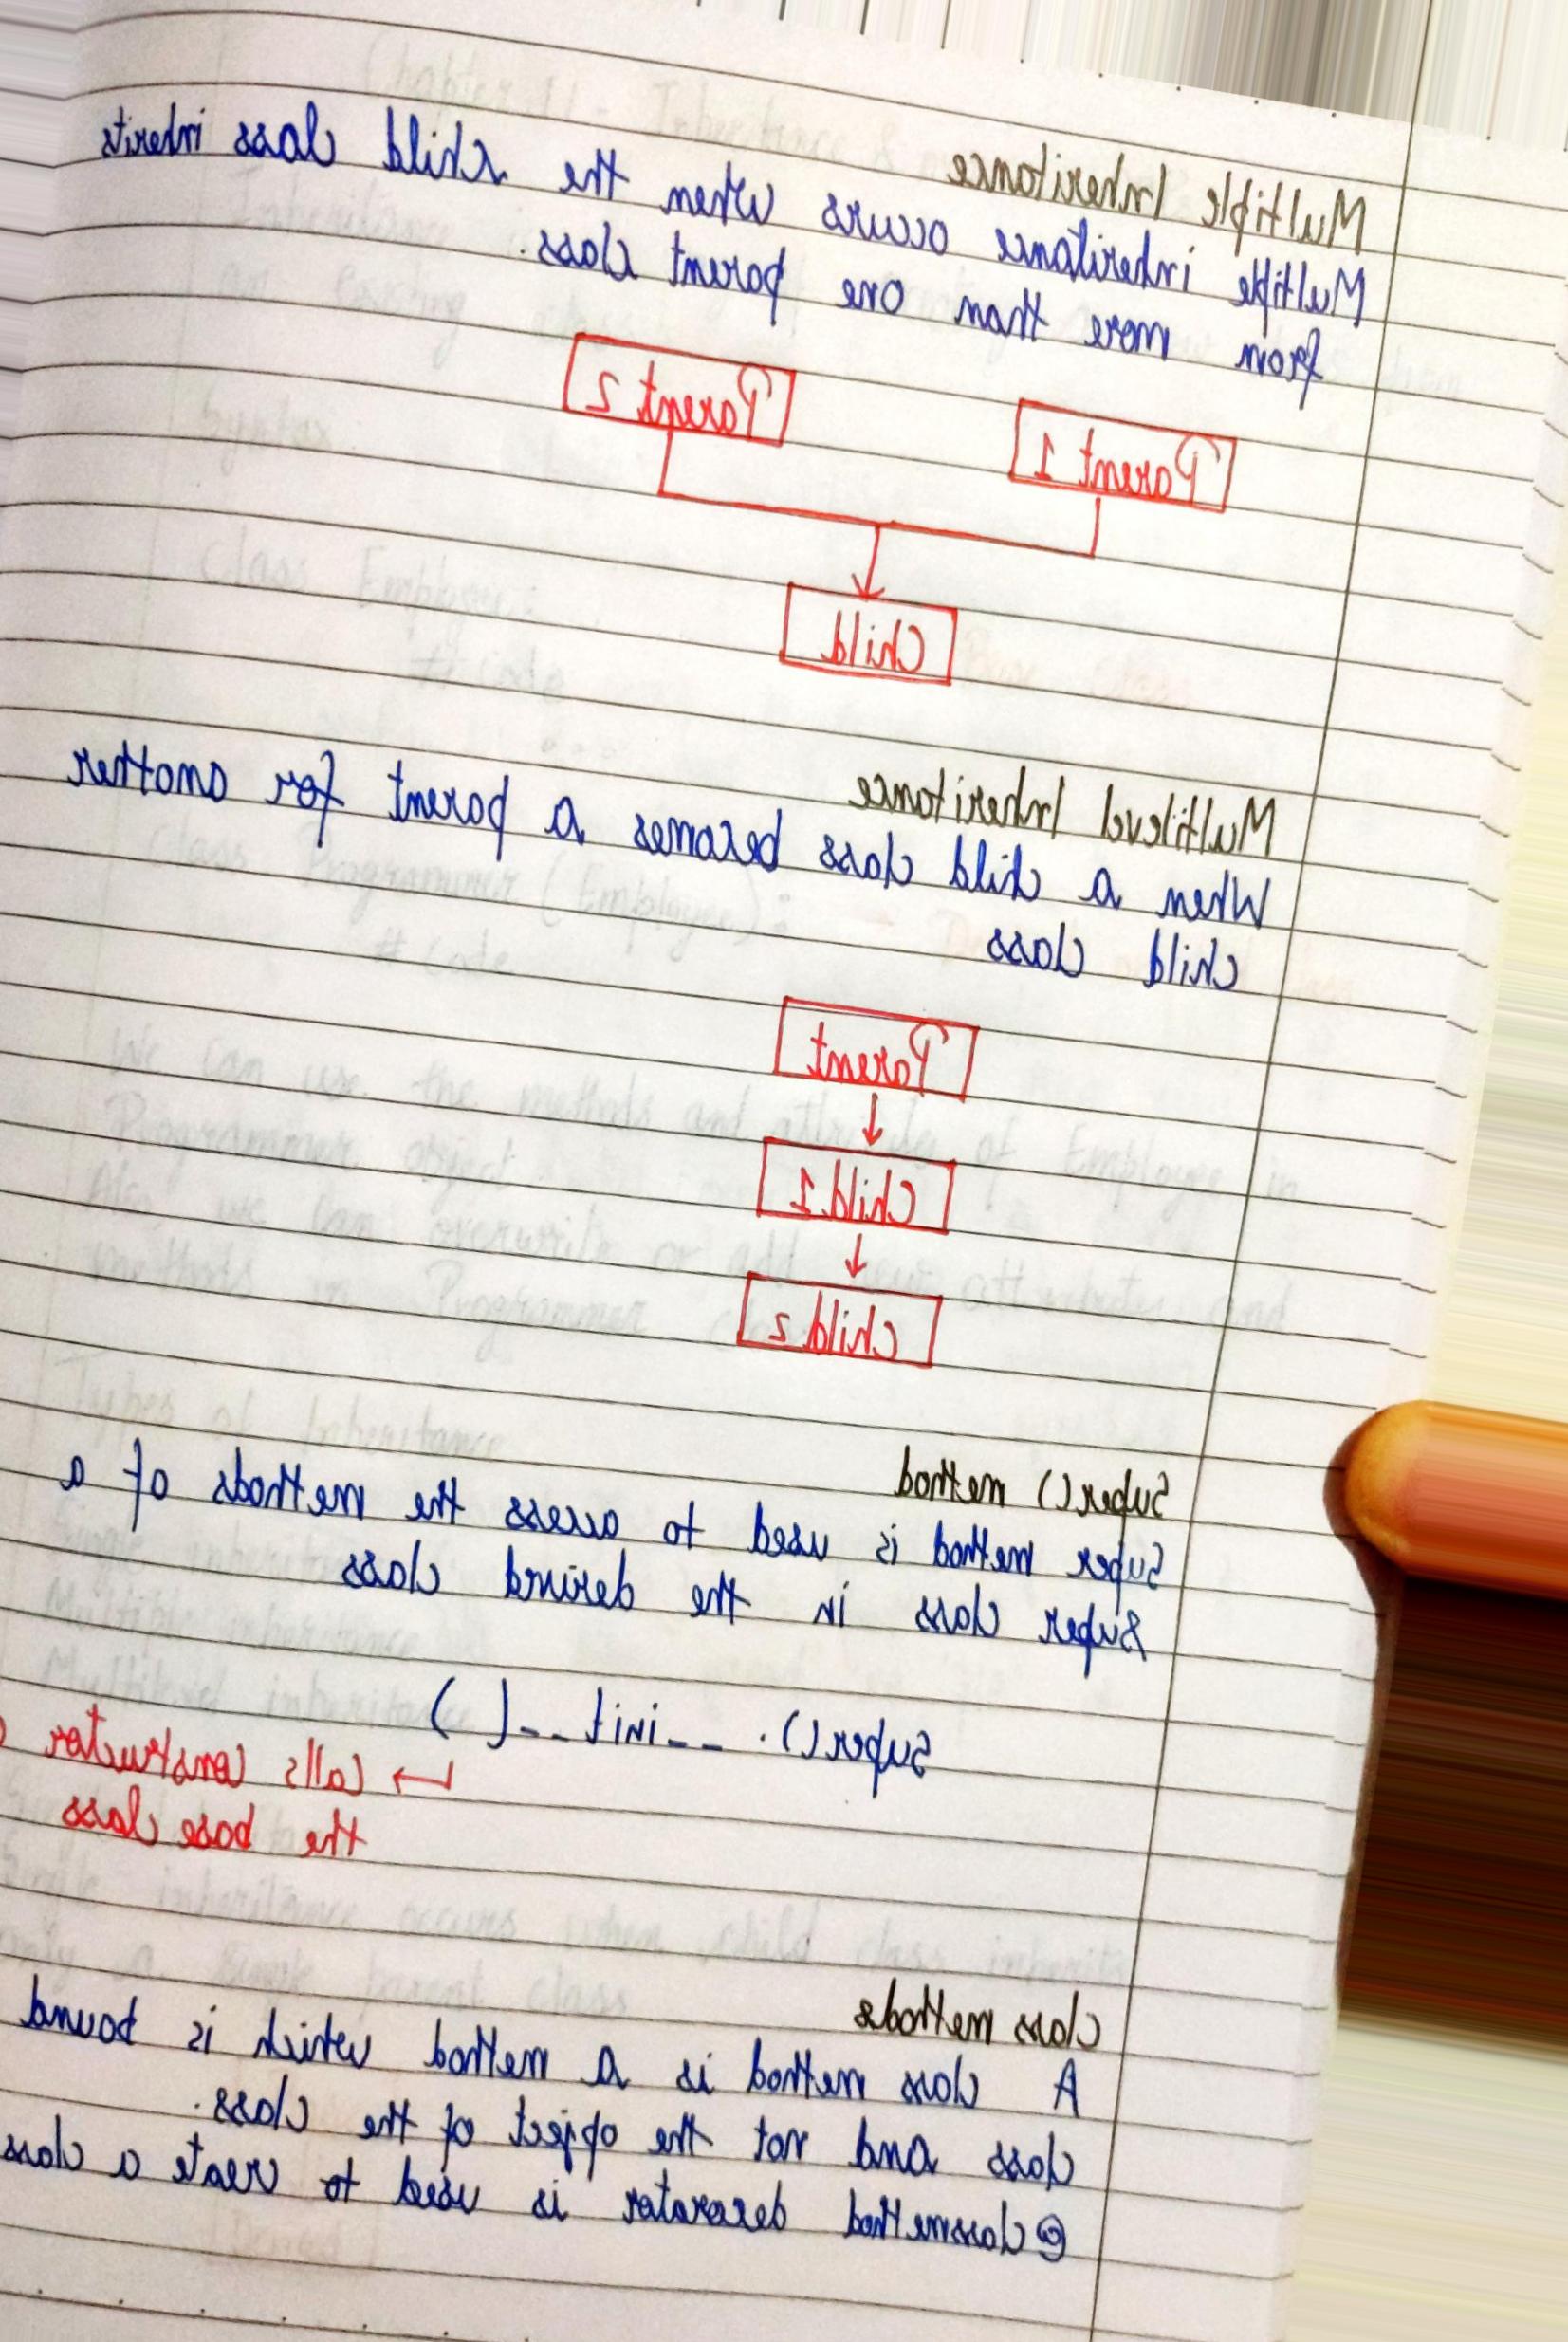 Multiple Inheritance
Multiple inheritance occurs when the child class inherits
from more than one parent class.
Parent 1
Parent 2
Child
Multilevel Inheritance
When a child class becomes a parent for another
child class
Parent
↓
Child 1
↓
Child 2
Super() method
Super method is used to access the methods of a
super class in the derived class
Super(). __init__( )
↳ Calls constructor
the base class
Class methods
A class method is a method which is bound
class and not the object of the class.
@classmethod decorator is used to create a class